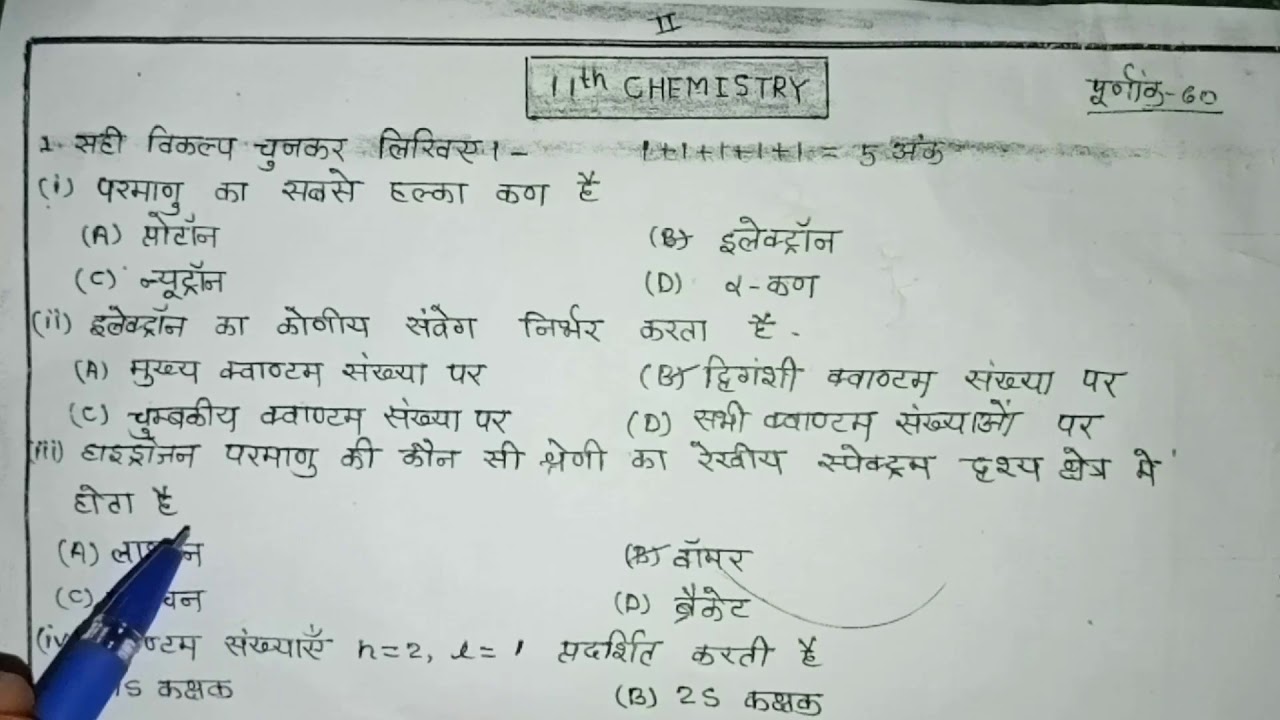 II
11th CHEMISTRY
पूर्णांक-60
1. सही विकल्प चुनकर लिखिए।- 1+1+1+1+1 = 5 अंक
(i) परमाणु का सबसे हल्का कण है
(A) प्रोटॉन (B) इलेक्ट्रॉन
(C) न्यूट्रॉन (D) α-कण
(ii) इलेक्ट्रॉन का कोणीय संवेग निर्भर करता है -
(A) मुख्य क्वाण्टम संख्या पर (B) द्विगंशी क्वाण्टम संख्या पर
(C) चुम्बकीय क्वाण्टम संख्या पर (D) सभी क्वाण्टम संख्याओं पर
(iii) हाइड्रोजन परमाणु की कौन सी श्रेणी का रेखीय स्पेक्ट्रम दृश्य क्षेत्र में
होता है
(A) (B) वॉमर
(C) (D) ब्रैकेट
(iv) संख्याएँ n=2, l=1 प्रदर्शित करती है
कक्षक (B) 2S कक्षक